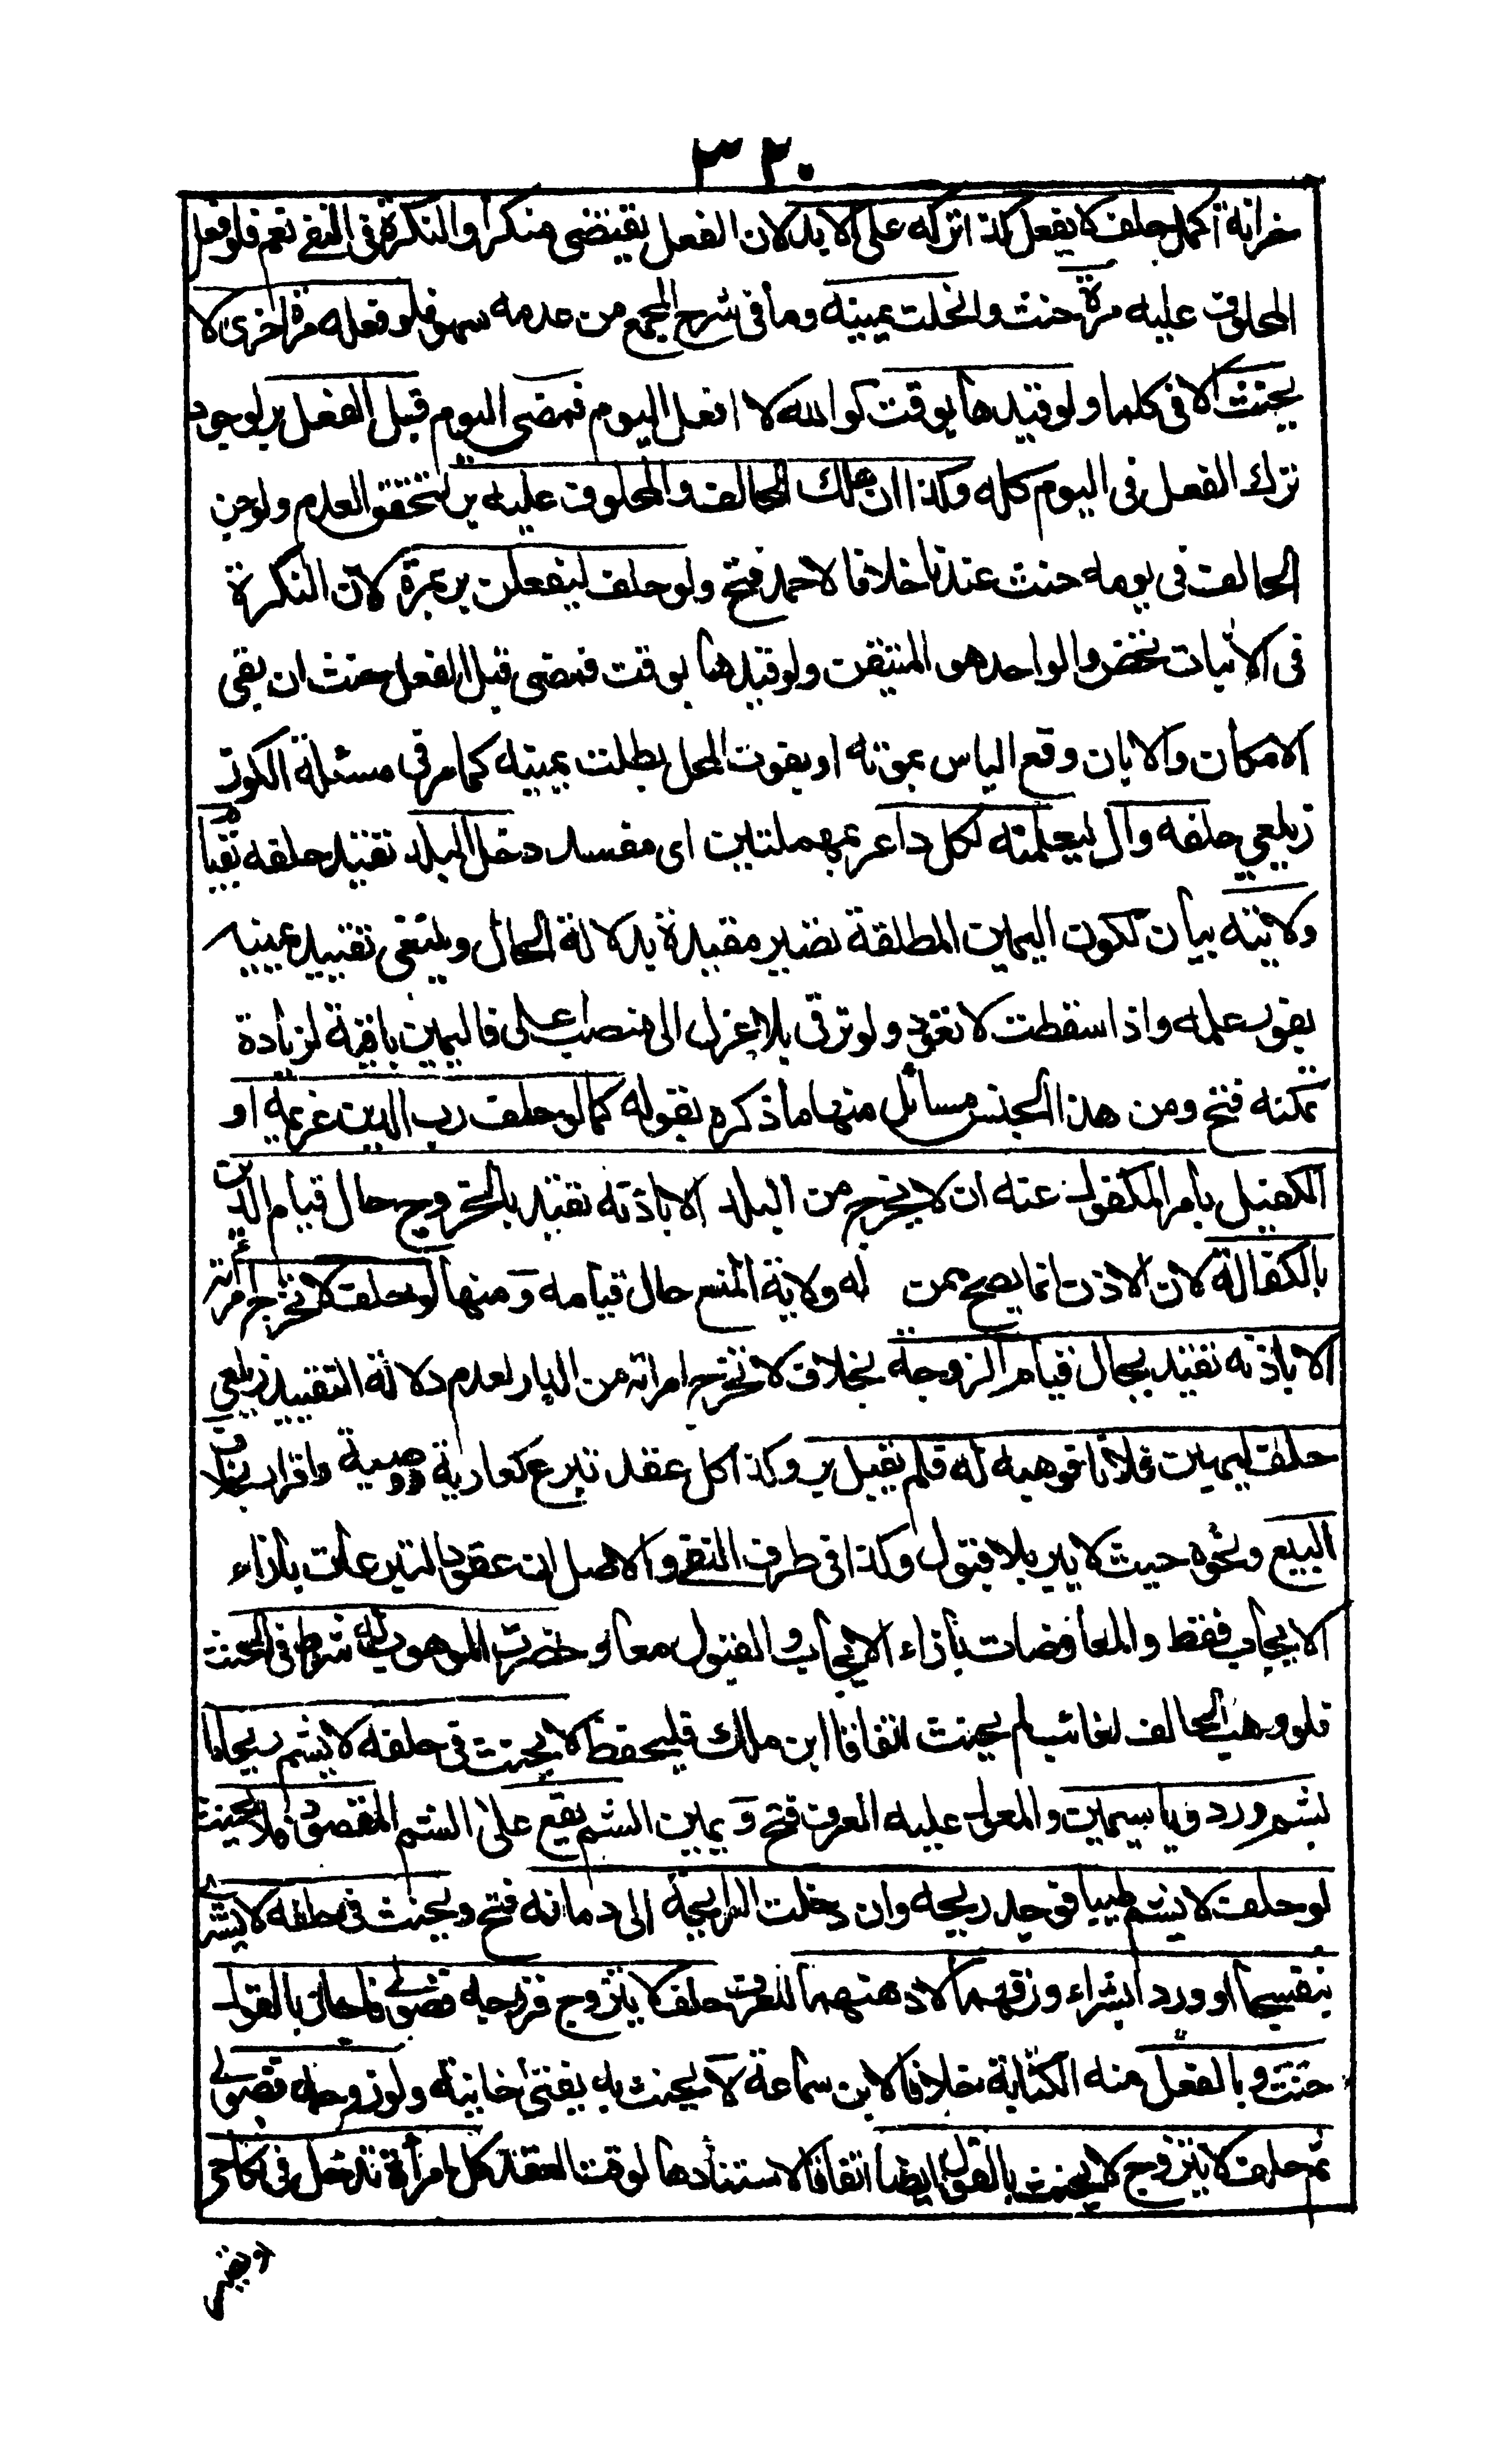 ٣٢٠
خزانة اكمل حلف لا يفعل كذا تركه على الابد لان الفعل يقتضى منكرا والنكرة فى النفى تعم فلو فعل
المحلوف عليه مرة حنث وانحلت يمينه وما فى شرح المجمع من عدمه سهو فلو فعله مرة اخرى لا
يحنث الا فى كلما ولو قيدها بوقت كوالله لا افعل اليوم فمضى اليوم قبل الفعل بر لوجود
ترك الفعل فى اليوم كله وكذا ان هلك الحالف والمحلوف عليه بر لتحقق العدم ولو جن
الحالف فى يومه حنث عندنا خلافا لاحمد فتح ولو حلف ليفعلن بر بمرة لان النكرة
فى الاثبات تخص والواحد هو المتيقن ولو قيدها بوقت فمضى قبل الفعل حنث ان بقى
الامكان والا بان وقع الياس بموته او بفوت المحل بطلت يمينه كما مر فى مسئلة الكوز
زيلعي حلفه وال ليعلمنه لكل داعر بمهملتين اى مفسد دخل البلد تقيد حلفه بقيام
ولايته بيان لكون اليمين المطلقة تصير مقيدة بدلالة الحال وينبغى تقييد يمينه
بفور علمه واذا سقطت لا تعود ولو ترقى بلا عزل الى منصب اعلى فاليمين باقية لزيادة
تمكنه فتح ومن هذا الجنس مسائل منها ما ذكره بقوله كما لو حلف رب الدين غريمه او
الكفيل بامر المكفول عنه ان لا يخرج من البلد الا باذنه تقيد بالخروج حال قيام الدين
بالكفالة لان الاذن انما يصح ممن له ولاية المنع حال قيامه ومنها لو حلف لا تخرج امرأته
الا باذنه تقيد بحال قيام الزوجة بخلاف لا تخرج امراته من الدار لعدم دلالة التقييد زيلعي
حلف ليهبن فلانا فوهبه له فلم يقبل بر وكذا كل عقد تبرع كعارية ووصية واقرار بخلاف
البيع ونحوه حيث لا يبر بلا قبول وكذا فى طرف النفى والاصل ان عقود التبرعات بازاء
الايجاب فقط والمعاوضات بازاء الايجاب والقبول معا وحضرة الموهوب له شرط فى الحنث
فلو وهب الحالف لغائب لم يحنث اتفاقا ابن ملك فليحفظ لا يحنث فى حلفه لا يشم ريحانا
بشم ورد وياسمين والمعول عليه العرف فتح و يمين الشم يقع على الشم المقصود فلا يحنث
لو حلف لا يشم طيبا فوجد ريحه وان دخلت الرايحة الى دماغه فتح ويحنث فى حلفه لا يشترى
بنفسجا او وردا بشراء ورقهما لا دهنهما للعرف حلف لا يتزوج فزوجه فضولى فاجاز بالقول
حنث و بالفعل منه الكتابة خلافا لابن سماعة لا يحنث به يفتى خانية ولو زوجه فضولى
ثم حلف لا يتزوج لا يحنث بالقول ايضا اتفاقا لاستنادها لوقت العقد كل امرأة تدخل فى نكاحى